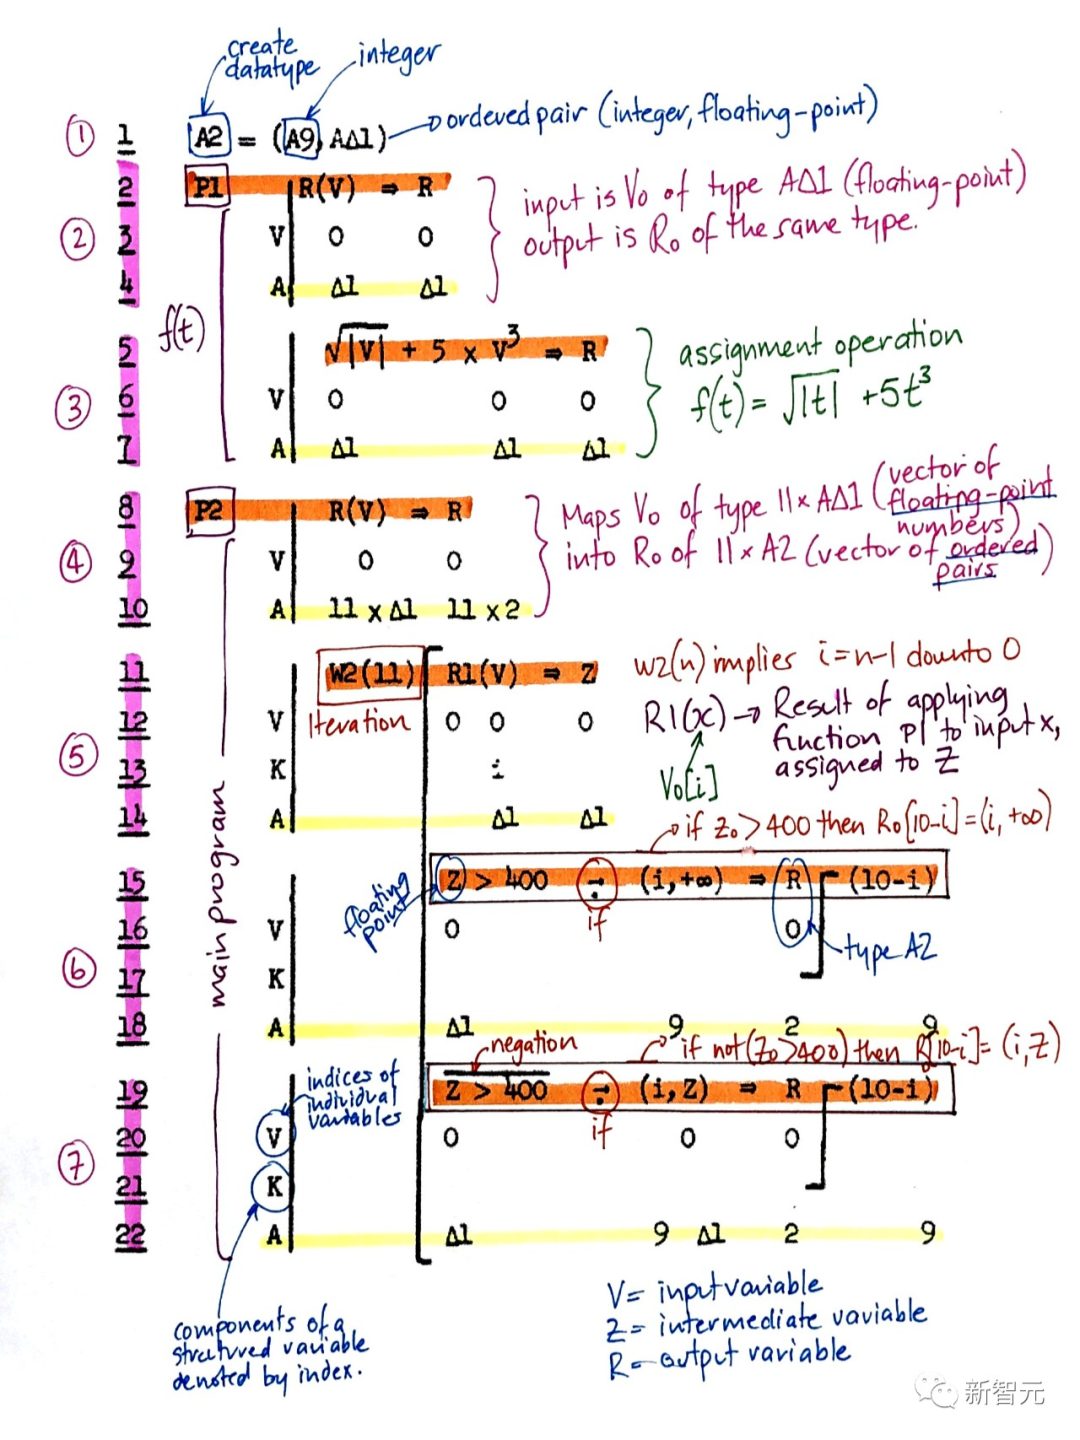 create
datatype
integer
① 1 A2 = (A9, AΔ1) ordered pair (integer, floating-point)
2 P1 R(V) ⇒ R
② 3 V 0 0
4 A Δ1 Δ1
input is V0 of type AΔ1 (floating-point)
output is R0 of the same type.
f(t)
5 √|V| + 5 × V³ ⇒ R
③ 6 V 0 0 0
7 A Δ1 Δ1 Δ1
assignment operation
f(t) = √|t| + 5t³
8 P2 R(V) ⇒ R
④ 9 V 0 0
10 A 11 x Δ1 11 x 2
Maps V0 of type 11 x AΔ1 (vector of
floating-point
numbers)
into R0 of 11 x A2 (vector of ordered
pairs)
main program
11 W2(11) R1(V) ⇒ Z
12 V Iteration 0 0 0
⑤ 13 K i
14 A Δ1 Δ1
w2(n) implies i=n-1 downto 0
R1(x) → Result of applying
function P1 to input x,
assigned to Z
V0[i]
if Z0 > 400 then R0[10-i] = (i, +∞)
15 Z > 400 →̣ (i,+∞) ⇒ R (10-i)
floating
point
if
16 V 0 0
type A2
⑥ 17 K
18 A Δ1 9 2 9
negation
if not(Z0>400) then R[10-i] = (i, Z)
19 Z > 400 →̣ (i,Z) ⇒ R (10-i)
indices of
individual
variables
if
20 V 0 0 0
⑦ 21 K
22 A Δ1 9 Δ1 2 9
components of a
structured variable
denoted by index.
V = input variable
Z = intermediate variable
R = output variable
新智元